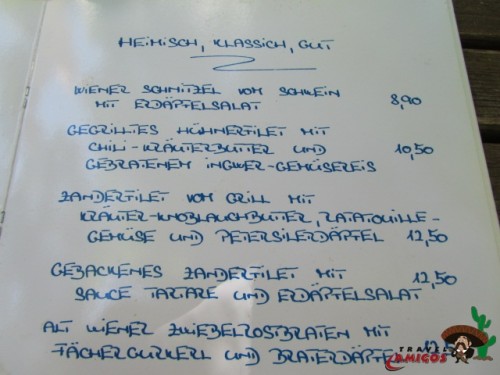 HEIMISCH, KLASSICH, GUT
WIENER SCHNITZEL VOM SCHWEIN
MIT ERDÄPFELSALAT 8,90
GEGRILLTES HÜHNERFILET MIT
CHILI-KRÄUTERBUTTER UND 10,50
GEBRATENEM INGWER-GEMÜSEREIS
ZANDERFILET VOM GRILL MIT
KRÄUTER-KNOBLAUCHBUTTER, RATATOUILLE-
GEMÜSE UND PETERSILERDÄPFEL 12,50
GEBACKENES ZANDERFILET MIT 12,50
SAUCE TARTARE UND ERDÄPFELSALAT
ALT WIENER ZWIEBELROSTBRATEN MIT
FÄCHERGURKERL UND BRATERDÄPFEL
TRAVEL
AMIGOS